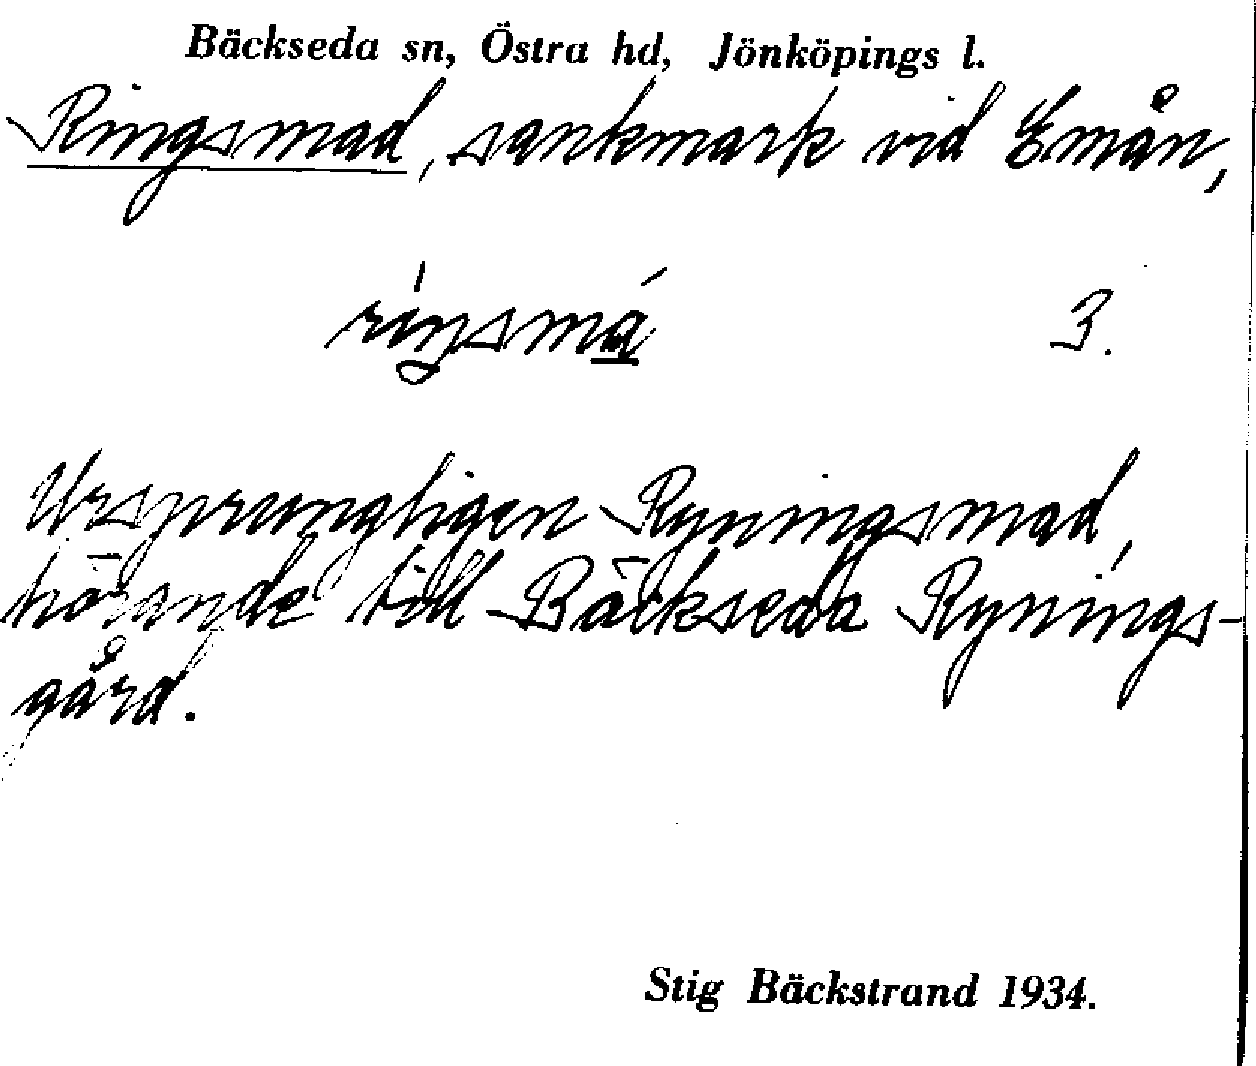 Bäckseda sn, Östra hd, Jönköpings l.
Ringsmad, sankmark vid Emån,
3.
Ursprungligen Ryningsmad,
hörande till Bäckseda Rynings-
gård.
Stig Bäckstrand 1934.